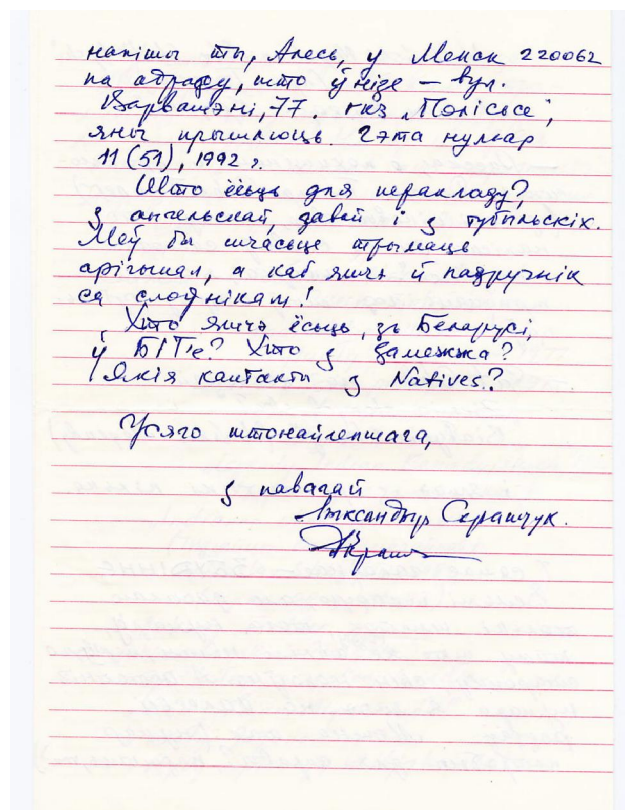 напішы ты, Алесь, у Менск 220062
па адрасу, што ўнізе — вул.
Варвашэні, 77. ГКЗ „Полісьсе”,
яны прышлюць. Гэта нумар
11 (51), 1992 г.
Што ёсьць для перакладу?,
з ангельскай, давай і з тубыльскіх.
Меў бы шчасьце трымаць
арігінал, а каб яшчэ й падручнік
са слоўнікам!
Хто яшчэ ёсьць, зь Беларусі,
ў БІТ'е? Хто з замежжа?
Якія кантакты з Natives?
Усяго штонайлепшага,
з павагай
Аляксандыр Скрапчук.